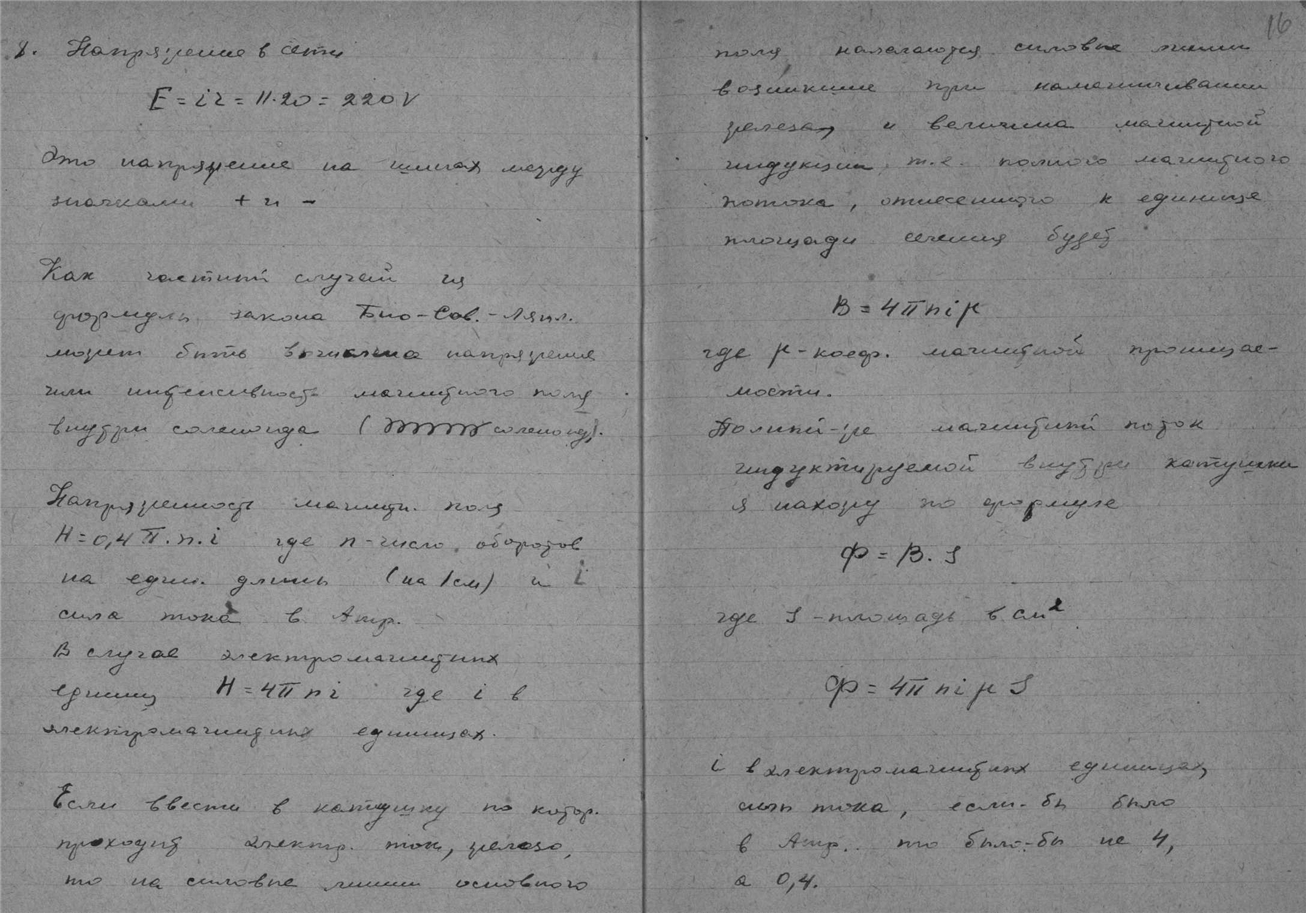 8. Напряжение в сети
E = ir = 11·20 = 220 V
Это напряжение на шинах между
значками + и –
Как частный случай из
формулы закона Био-Сав.-Лапл.
может быть вычислена напряжение
или интенсивность магнитного поля
внутри соленоида ( соленоид).
Напряженность магнитн. поля
H = 0,4 π. n. i где n - число оборотов
на един. длины (на 1 см) и i
сила тока в Амп.
В случае электромагнитных
единиц H = 4π n i где i в
электромагнитных единицах.
Если ввести в катушку по котор.
проходит электр. ток, железо,
то на силовые линии основного
16
поля налагаются силовые линии
возникшие при намагничивании
железа, и величина магнитной
индукции, т.е. полного магнитного
потока, отнесенного к единице
площади сечения будет
B = 4π n i μ
где μ - коеф. магнитной проницае-
мости.
Полный-же магнитный поток
индуктируемой внутри катушки
я нахожу по формуле
Ф = B. S
где S - площадь в см²
Ф = 4π n i μ S
i в электромагнитных единицах
силы тока, если-бы было
в Амп. то было-бы не 4,
а 0,4.